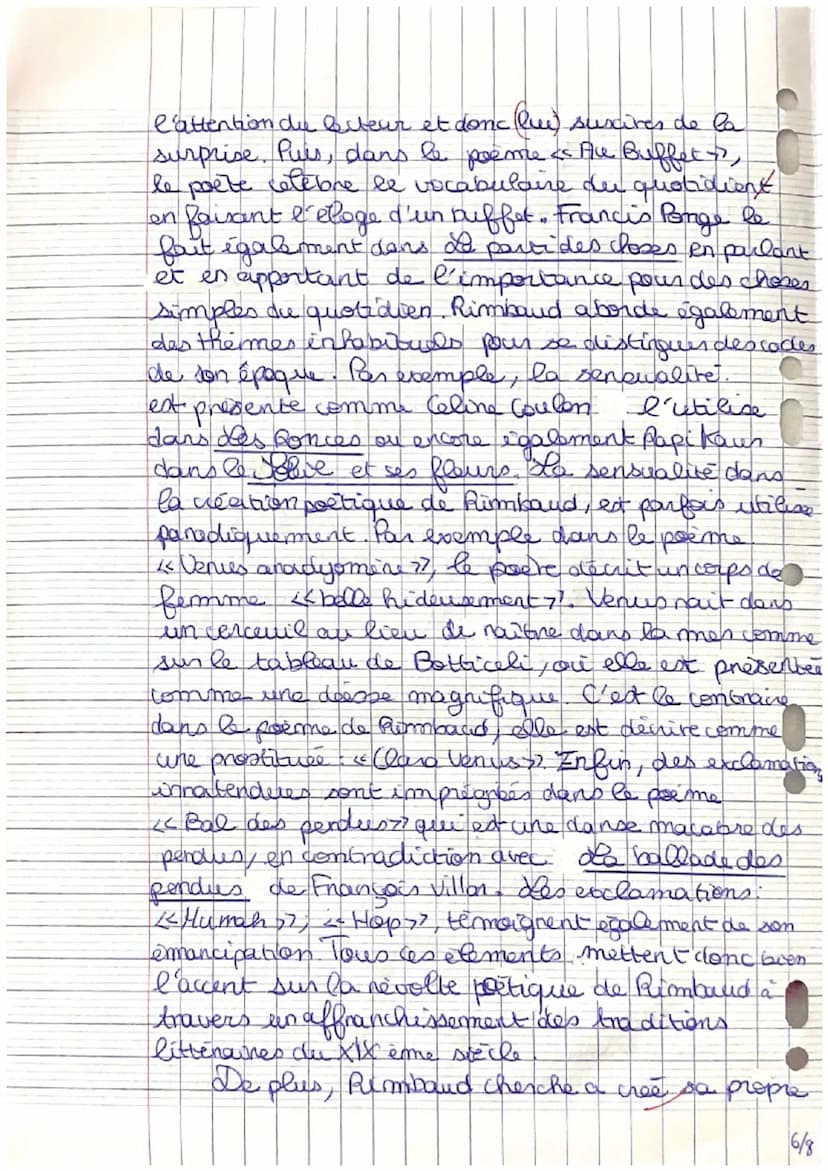 l'attention du lecteur et donc (lui) susciter de la
surprise. Puis, dans le poème << Au Buffet >>,
le poète célèbre le vocabulaire du quotidient
en faisant l'éloge d'un buffet. Francis Ponge le
fait également dans Le parti des choses en parlant
et en apportant de l'importance pour des choses
simples du quotidien. Rimbaud aborde également
des thèmes inhabituels pour se distinguer des codes
de son époque. Par exemple, la sensualité.
est présente comme Céline Coulon l'utilise
dans Les Ronces ou encore également Papi Kaur
dans le Solie et ses fleurs. La sensualité dans
la création poétique de Rimbaud, est parfois utilisé
parodiquement. Par exemple dans le poème
<< Venus anadyomène >>, le poète décrit un corps de
femme << belle hideusement >>. Venus nait dans
un cerceuil au lieu de naître dans la mer comme
sur le tableau de Botticeli, où elle est présentée
comme une déesse magnifique. C'est le contraire
dans le poème de Rimbaud, elle est décrite comme
une prostituée : << Clara Venus >>. Enfin, des exclamations
innatendues sont imprégnées dans le poème
<< Bal des pendus >> qui est une danse macabre des
pendus, en contradiction avec La ballade des
pendus de François Villon. Les exclamations :
<< Hurrah >>, << Hop >>, témoignent également de son
émancipation. Tous ces éléments mettent donc bien
l'accent sur la révolte poétique de Rimbaud à
travers un affranchissement des traditions
littéraires du XIX ème siècle.
De plus, Rimbaud cherche a creé sa propre
6/8